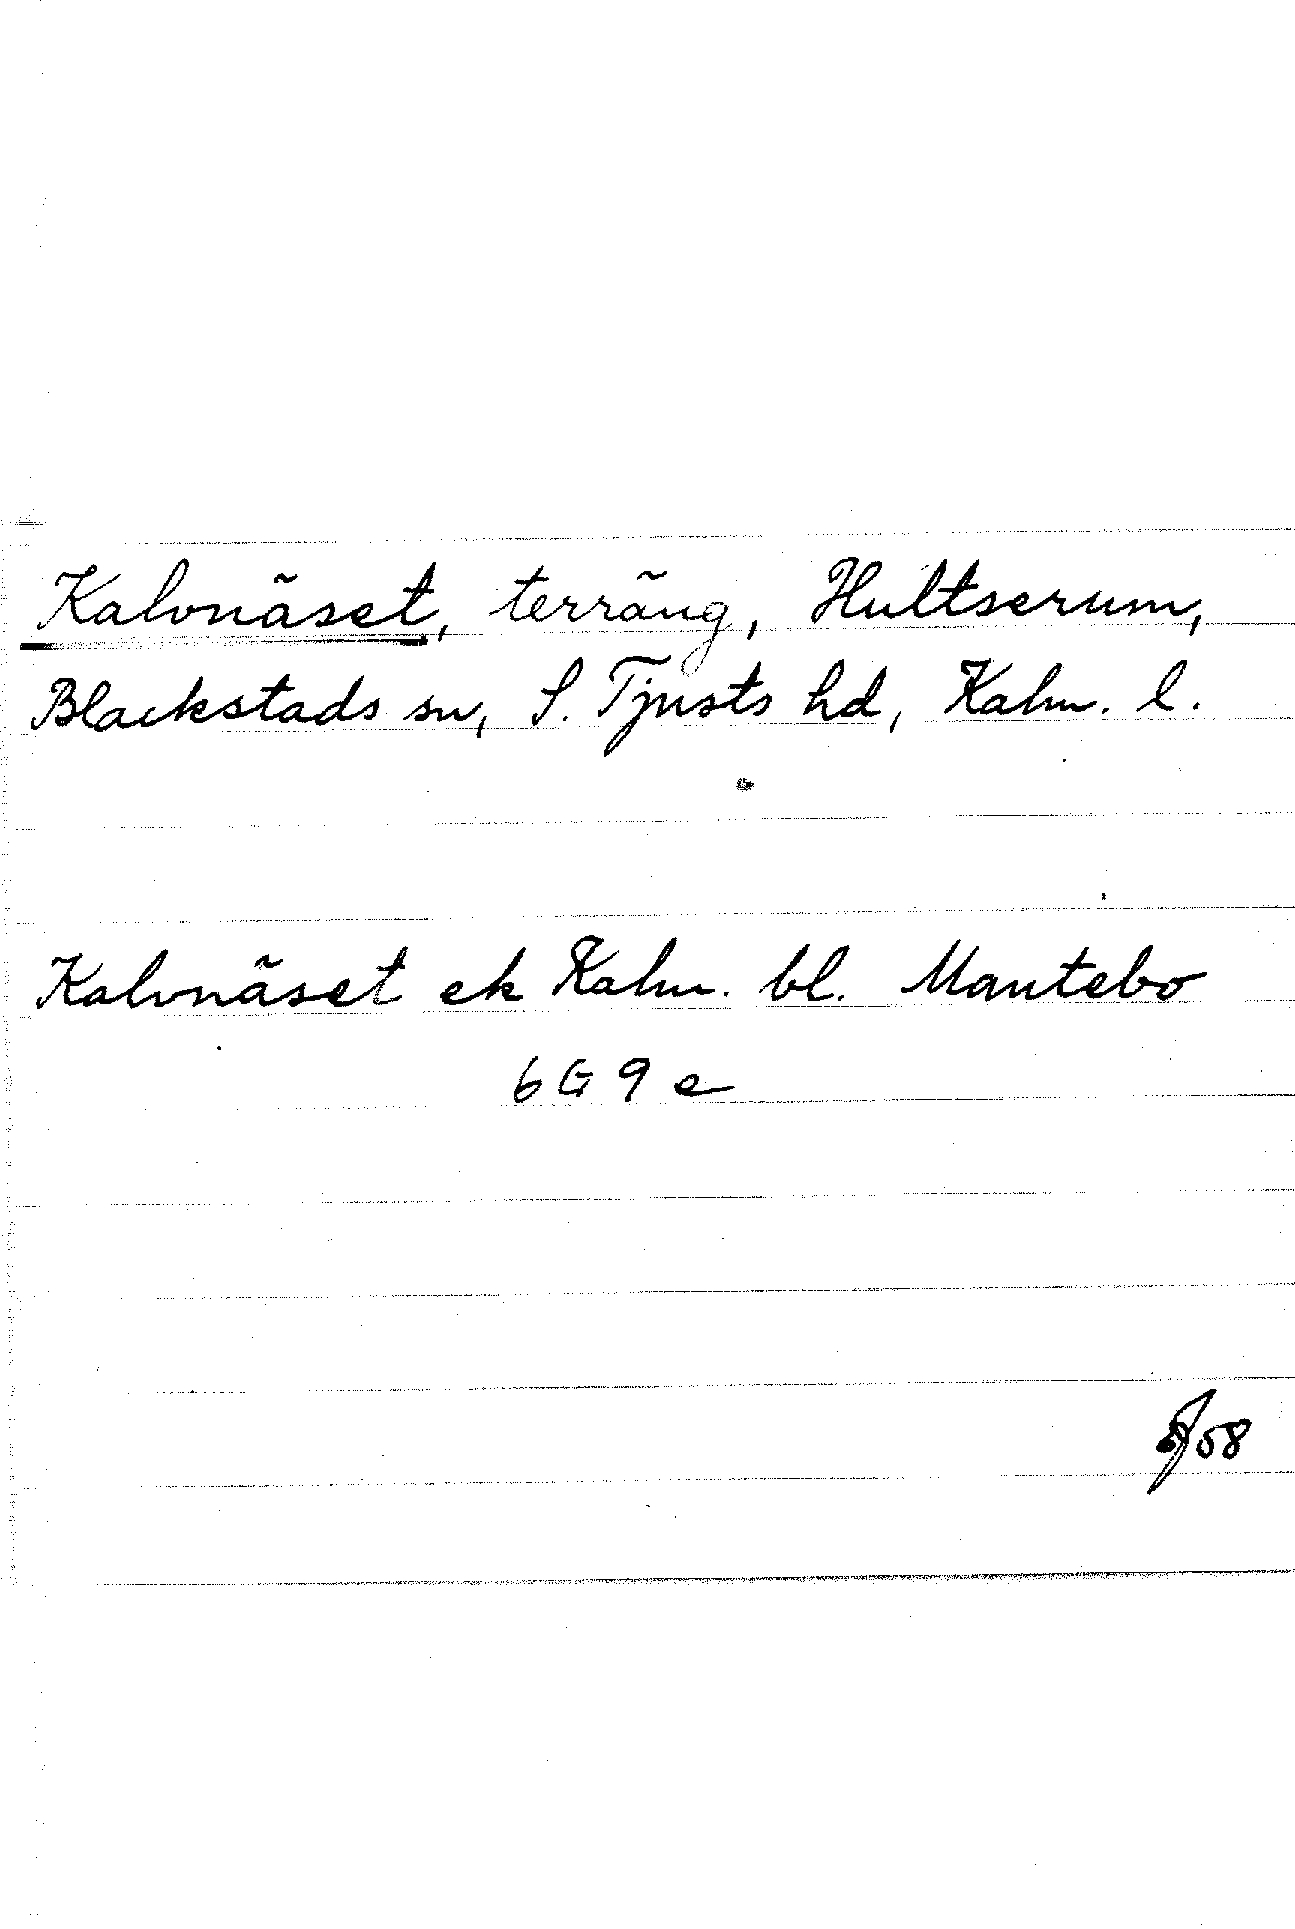 Kalvnäset, terräng, Hultserum,
Blackstads sn, S. Tjusts hd, Kalm. l.
Kalvnäset ek Kalm. bl. Mantebo
6G 9 e
58